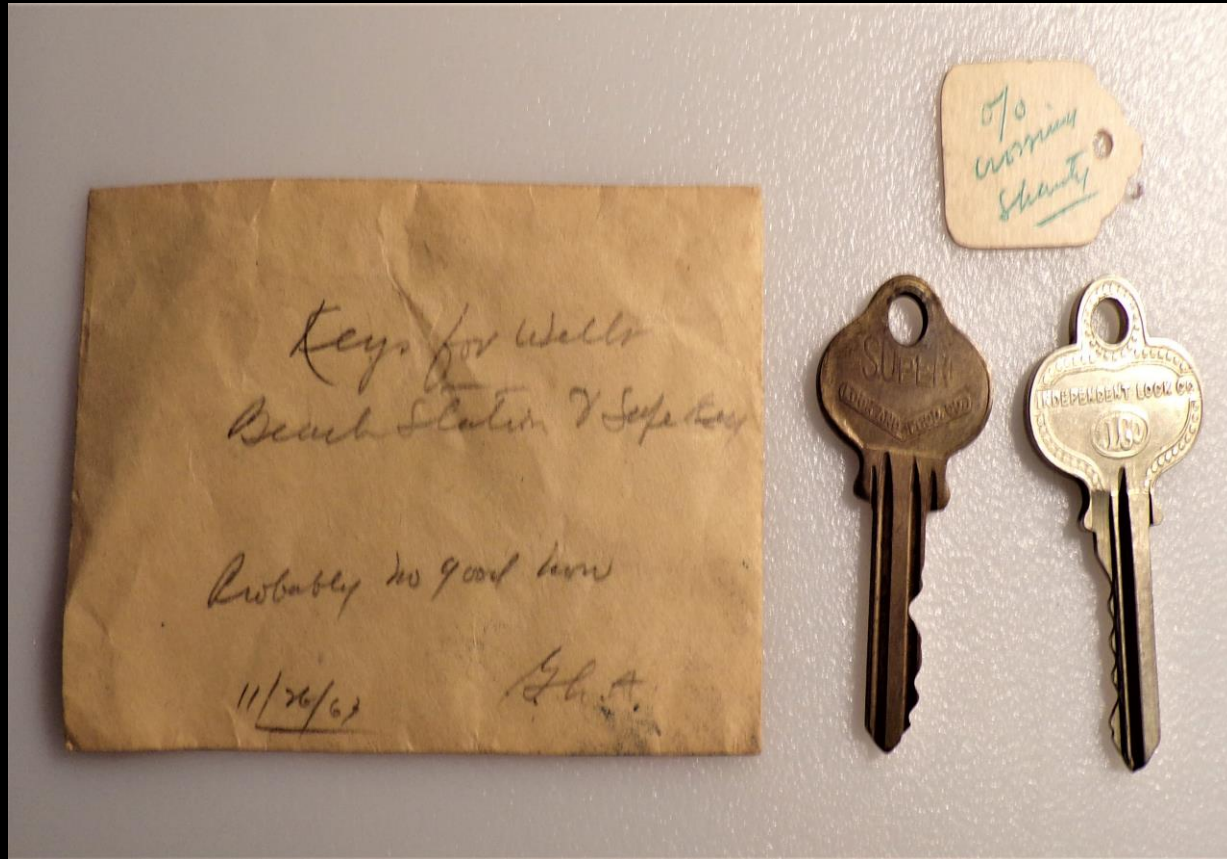 Keys for Wells
Beach Station & Safe Key
Probably no good now
11/26/63
G.h.A.
o/o
crossing
shanty
SUPER
INDEPENDENT LOCK CO.
ILCO